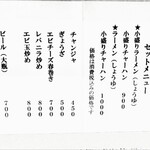 セットメニュー
★ラーメン(しょうゆ)
小盛りチャーハン 900
★小盛りラーメン(しょうゆ)
小盛りチャーハン 1000
価格は消費税込みの価格です
チャンジャ 450
ぎょうざ 500
エビチーズ春巻き 700
レバニラ炒め 800
エビ玉炒め 800
ビール(大瓶) 700